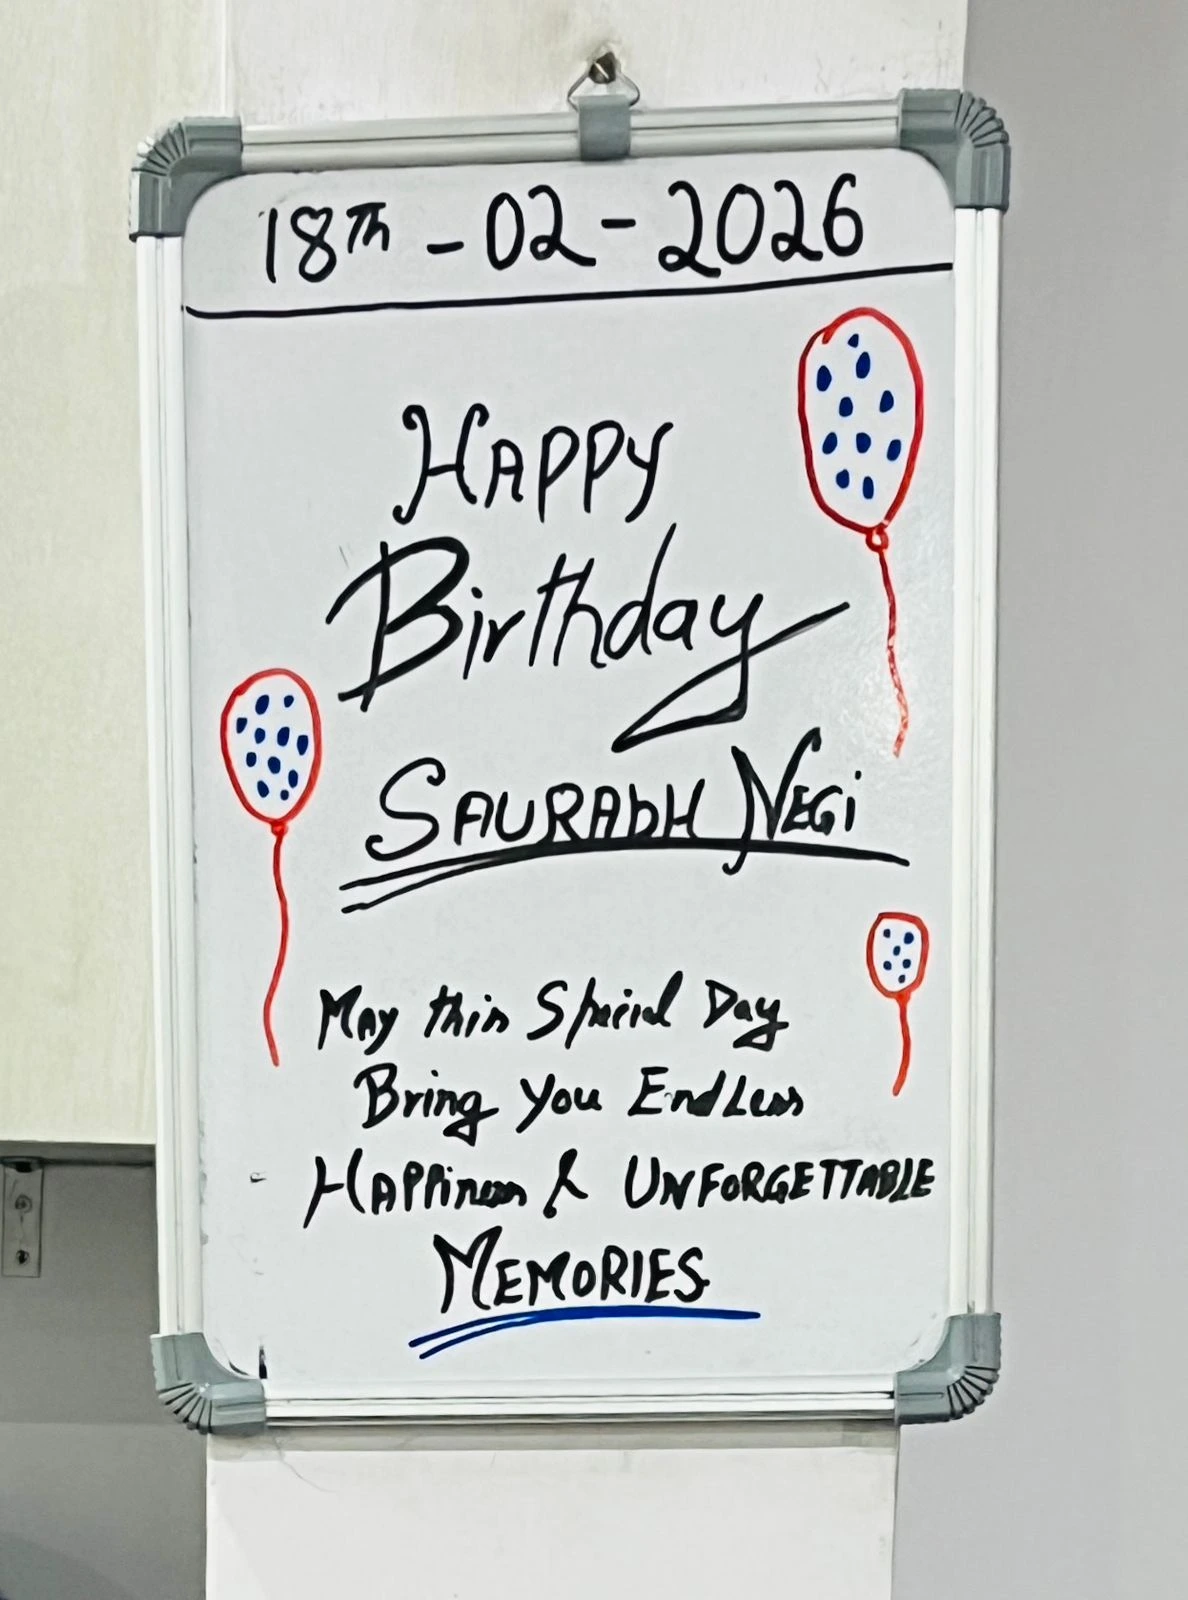 18Th - 02 - 2026
HAPPY
Birthday
SAURABH NEGi
MAY this Special Day
Bring You EndLess
HAPPiness & UNFORGETTABLE
MEMORIES